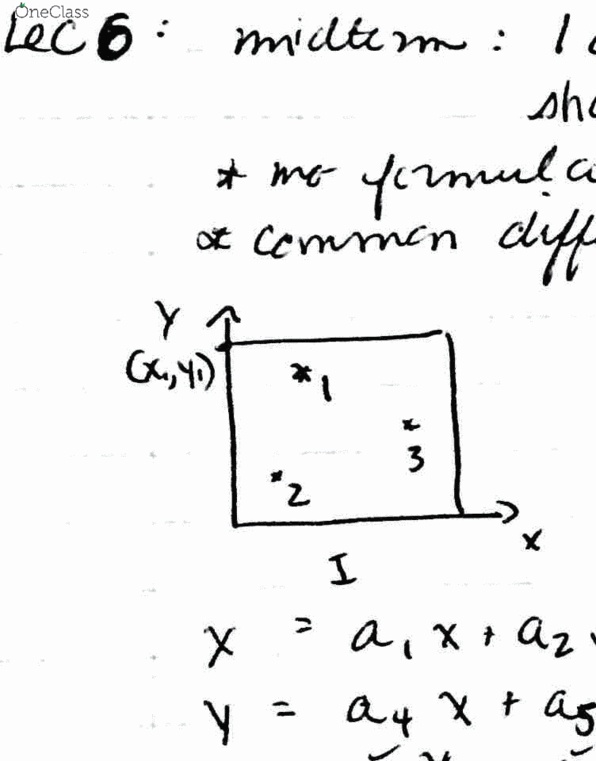 OneClass
Lec 6: midterm: 1
sho
* no formula
* common diff
Y
(x₁,y₁)
* 1
* 3
* 2
x
I
x = a₁ x + a₂
y = a₄ x + a₅